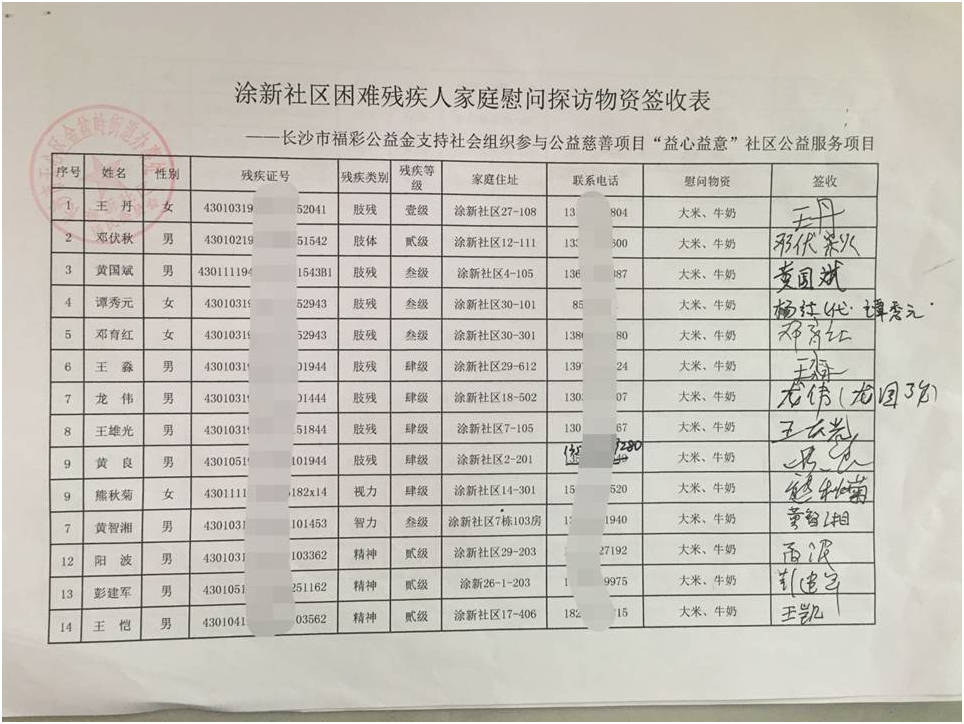 涂新社区困难残疾人家庭慰问探访物资签收表
——长沙市福彩公益金支持社会组织参与公益慈善项目“益心益意”社区公益服务项目
序号 姓名 性别 残疾证号 残疾类别 残疾等级 家庭住址 联系电话 慰问物资 签收
1 王 丹 女 43010319 52041 肢残 壹级 涂新社区27-108 131 804 大米、牛奶 王丹
2 邓伏秋 男 43010219 51542 肢体 贰级 涂新社区12-111 133 600 大米、牛奶 邓伏秋
3 黄国斌 男 430111194 1543B1 肢残 叁级 涂新社区4-105 136 387 大米、牛奶 黄国斌
4 谭秀元 女 43010319 52943 肢残 叁级 涂新社区30-101 85 大米、牛奶 代 谭秀元
5 邓育红 女 43010319 52943 肢残 叁级 涂新社区30-301 138 80 大米、牛奶 邓育红
6 王 淼 男 43010319 01944 肢残 肆级 涂新社区29-612 139 24 大米、牛奶 王淼
7 龙 伟 男 43010319 01444 肢残 肆级 涂新社区18-502 130 07 大米、牛奶 龙伟(龙国
8 王雄光 男 43010319 51844 肢残 肆级 涂新社区7-105 130 67 大米、牛奶
9 黄 良 男 43010519 101944 肢残 肆级 涂新社区2-201 3280 大米、牛奶
9 熊秋菊 女 43011119 182x14 视力 肆级 涂新社区14-301 15 520 大米、牛奶 熊秋菊
7 黄智湘 男 4301031 101453 智力 叁级 涂新社区7栋103房 1940 大米、牛奶 黄智湘
12 阳 波 男 4301031 103362 精神 贰级 涂新社区29-203 27192 大米、牛奶
13 彭建军 男 4301051 251162 精神 贰级 涂新26-1-203 9975 大米、牛奶 彭建军
14 王 恺 男 4301041 03562 精神 贰级 涂新社区17-406 182 15 大米、牛奶 王凯